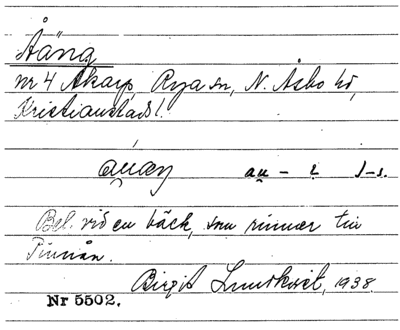 Åäng
nr 4 Åkarp, Rya sn, N. Åsbo hd,
Kristianstads l.
au – 2 1–s.
Bel. vid en bäck, som rinner till
Pinnån.
Birgit Lundkvist, 1938.
Nr 5502.